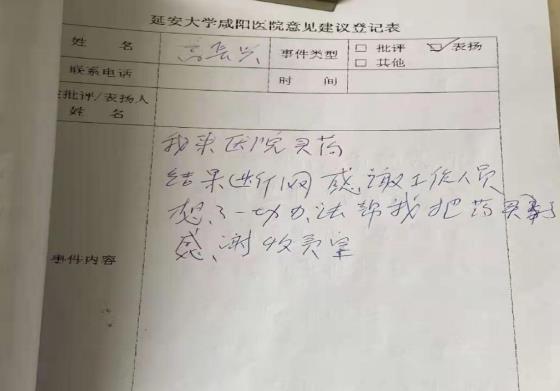 延安大学咸阳医院意见建议登记表
姓 名 高长兴 事件类型 □ 批评 ☑ 表扬
□ 其他
联系电话 时 间
批评/表扬人
姓 名
事件内容
我来医院买药
结果断网 感谢工作人员
想了一切办法帮我把药买到了
感谢收费室